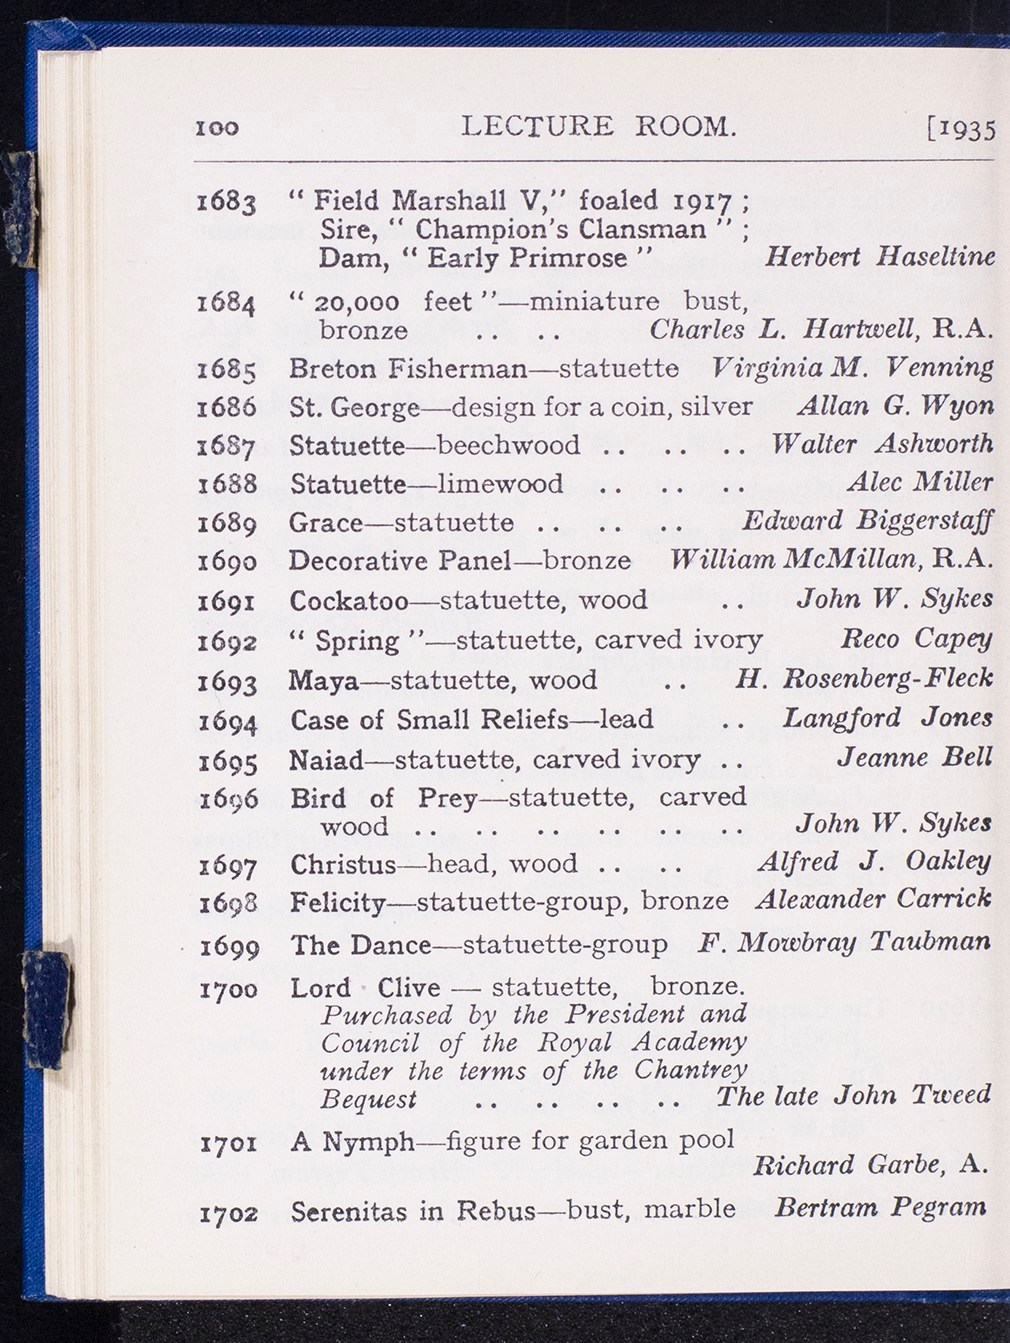 100 LECTURE ROOM. [1935
1683 “ Field Marshall V,” foaled 1917 ;
Sire, “ Champion’s Clansman ” ;
Dam, “ Early Primrose ” Herbert Haseltine
1684 “ 20,000 feet ”—miniature bust,
bronze .. .. Charles L. Hartwell, R.A.
1685 Breton Fisherman—statuette Virginia M. Venning
1686 St. George—design for a coin, silver Allan G. Wyon
1687 Statuette—beechwood .. .. .. Walter Ashworth
1688 Statuette—limewood .. .. .. Alec Miller
1689 Grace—statuette .. .. .. Edward Biggerstaff
1690 Decorative Panel—bronze William McMillan, R.A.
1691 Cockatoo—statuette, wood .. John W. Sykes
1692 “ Spring ”—statuette, carved ivory Reco Capey
1693 Maya—statuette, wood .. H. Rosenberg-Fleck
1694 Case of Small Reliefs—lead .. Langford Jones
1695 Naiad—statuette, carved ivory .. Jeanne Bell
1696 Bird of Prey—statuette, carved
wood .. .. .. .. .. .. John W. Sykes
1697 Christus—head, wood .. .. Alfred J. Oakley
1698 Felicity—statuette-group, bronze Alexander Carrick
1699 The Dance—statuette-group F. Mowbray Taubman
1700 Lord Clive — statuette, bronze.
Purchased by the President and
Council of the Royal Academy
under the terms of the Chantrey
Bequest .. .. .. .. The late John Tweed
1701 A Nymph—figure for garden pool
Richard Garbe, A.
1702 Serenitas in Rebus—bust, marble Bertram Pegram